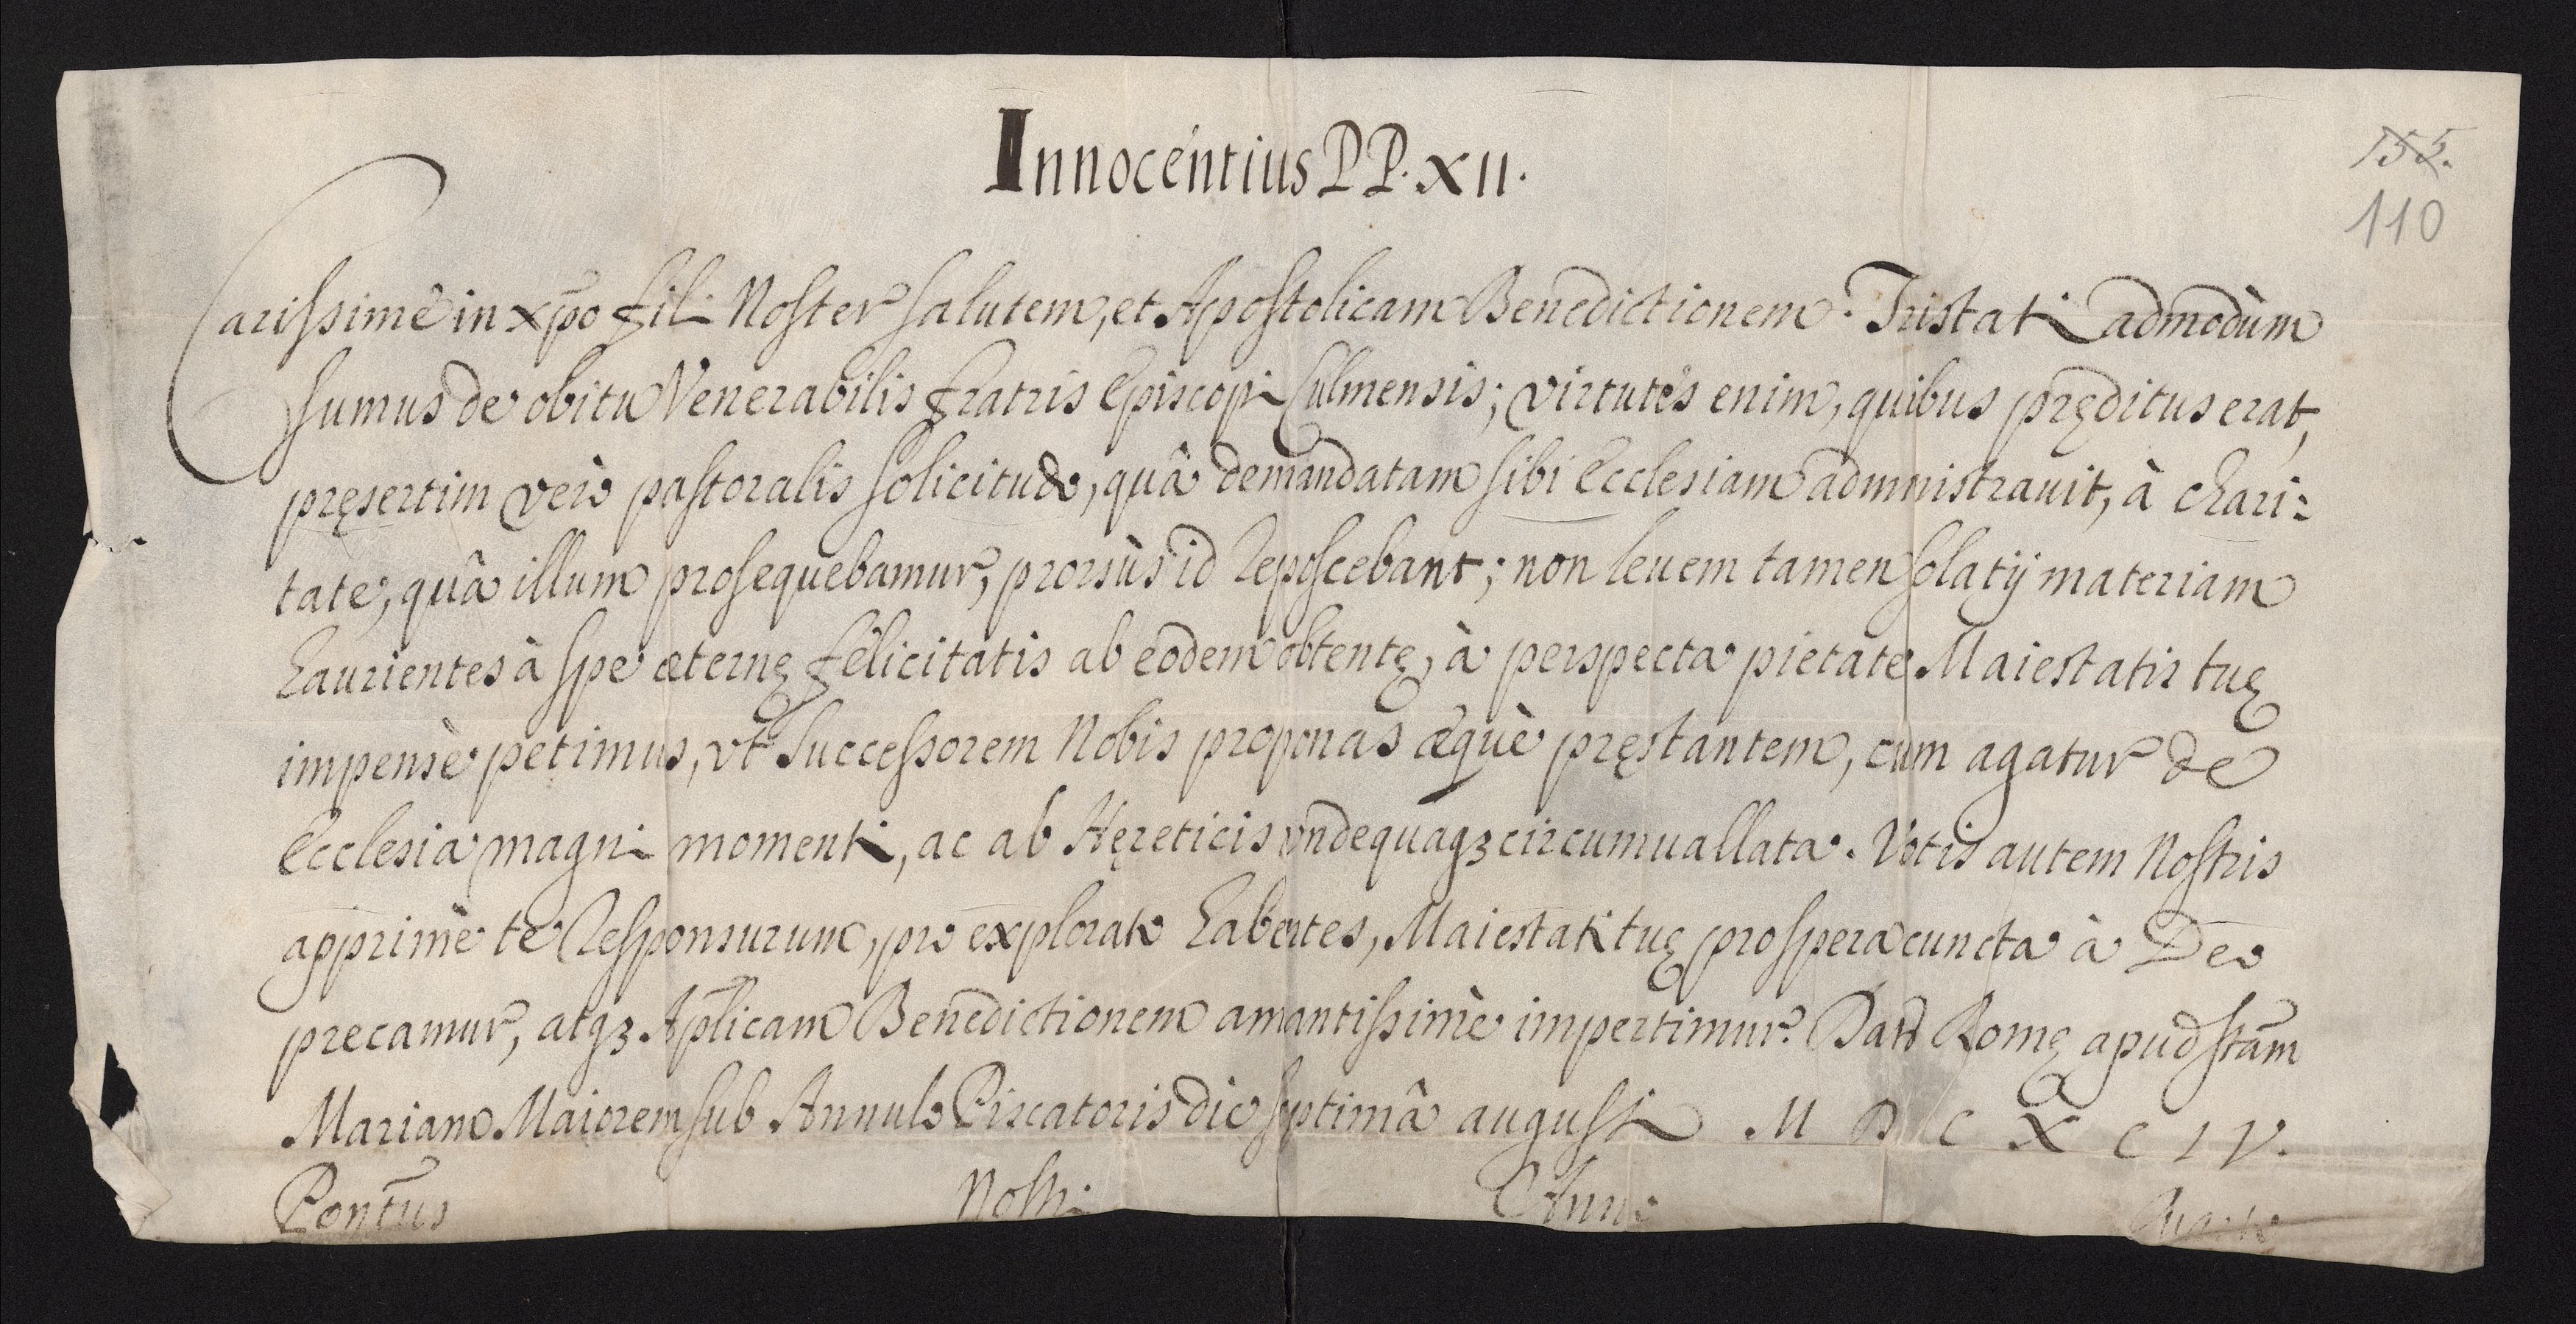 Innocéntius PP. XII.
155.
110
Carissimè in xp̃o fili Noster salutem, et Apostolicam Benedictionem. Tristati admodùm
sumus de obitu Venerabilis fratris Episcopi Culmensis; virtutes enim, quibus pręditus erat,
pręsertim verò pastoralis solicitudo, quâ demandatam sibi Ecclesiam administrauit, à chari:
tate, quâ illum prosequebamur, prorsùs id reposcebant; non leuem tamen solatij materiam
haurientes à spe æternę felicitatis ab eodem obtentę, à perspecta pietate Maiestatis tuę
impensè petimus, vt successorem Nobis proponas æquè pręstantem, cum agatur de
Ecclesia magni momenti, ac ab Hęreticis vndequaqȝ circumuallata. Votis autem Nostris
apprimè te responsurum, pro explorato habentes, Maiestati tuę prospera cuncta à Deo
precamur, atqȝ Ap̃licam Benedictionem amantissimè impertimur. Dat̃ Romę apud stãm
Mariam Maiorem sub Annulo Piscatoris die septimâ augusti M D C X C IV.
Pontũs Nostri Anno Quarto